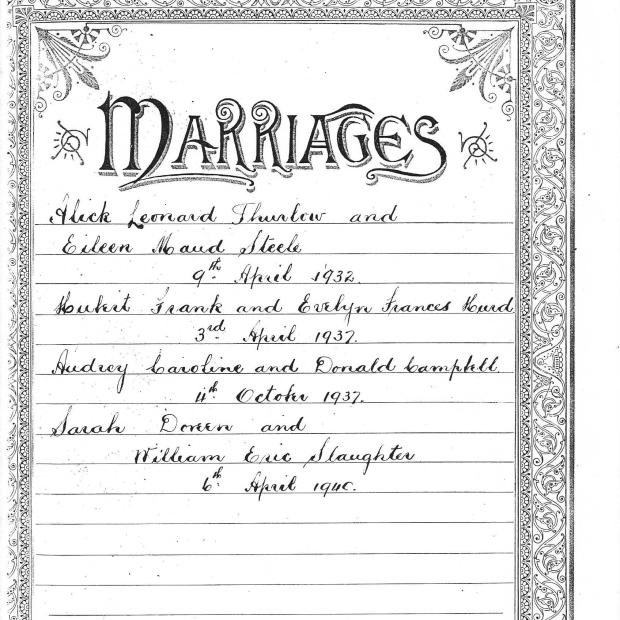 MARRIAGES
Alick Leonard Thurlow and
Eileen Maud Steele
9th April 1932.
Hubert Frank and Evelyn Frances Hurd
3rd April 1937.
Audrey Caroline and Donald Campbell.
4th October 1937.
Sarah Doreen and
William Eric Slaughter
6th April 1940.